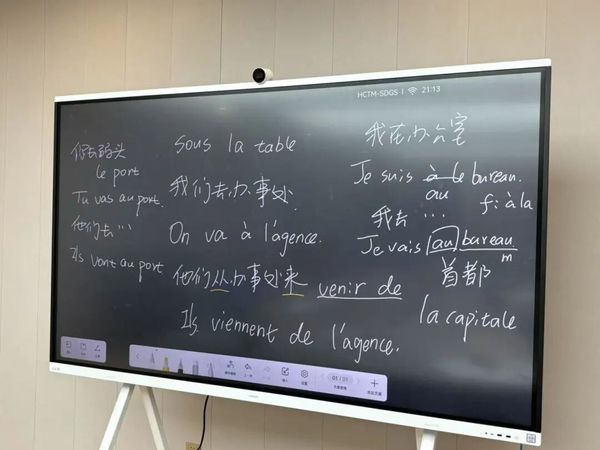 HCTM-SDGS 21:13
你去码头
le port
Tu vas au port.
他们去…
Ils vont au port
sous la table
我们去办事处.
On va à l'agence.
他们从办事处来 venir de
Ils viennent de l'agence.
我在办公室
Je suis à le bureau.
au
f: à la
我去 …
Je vais au bureau
m
首都
la capitale
01/01